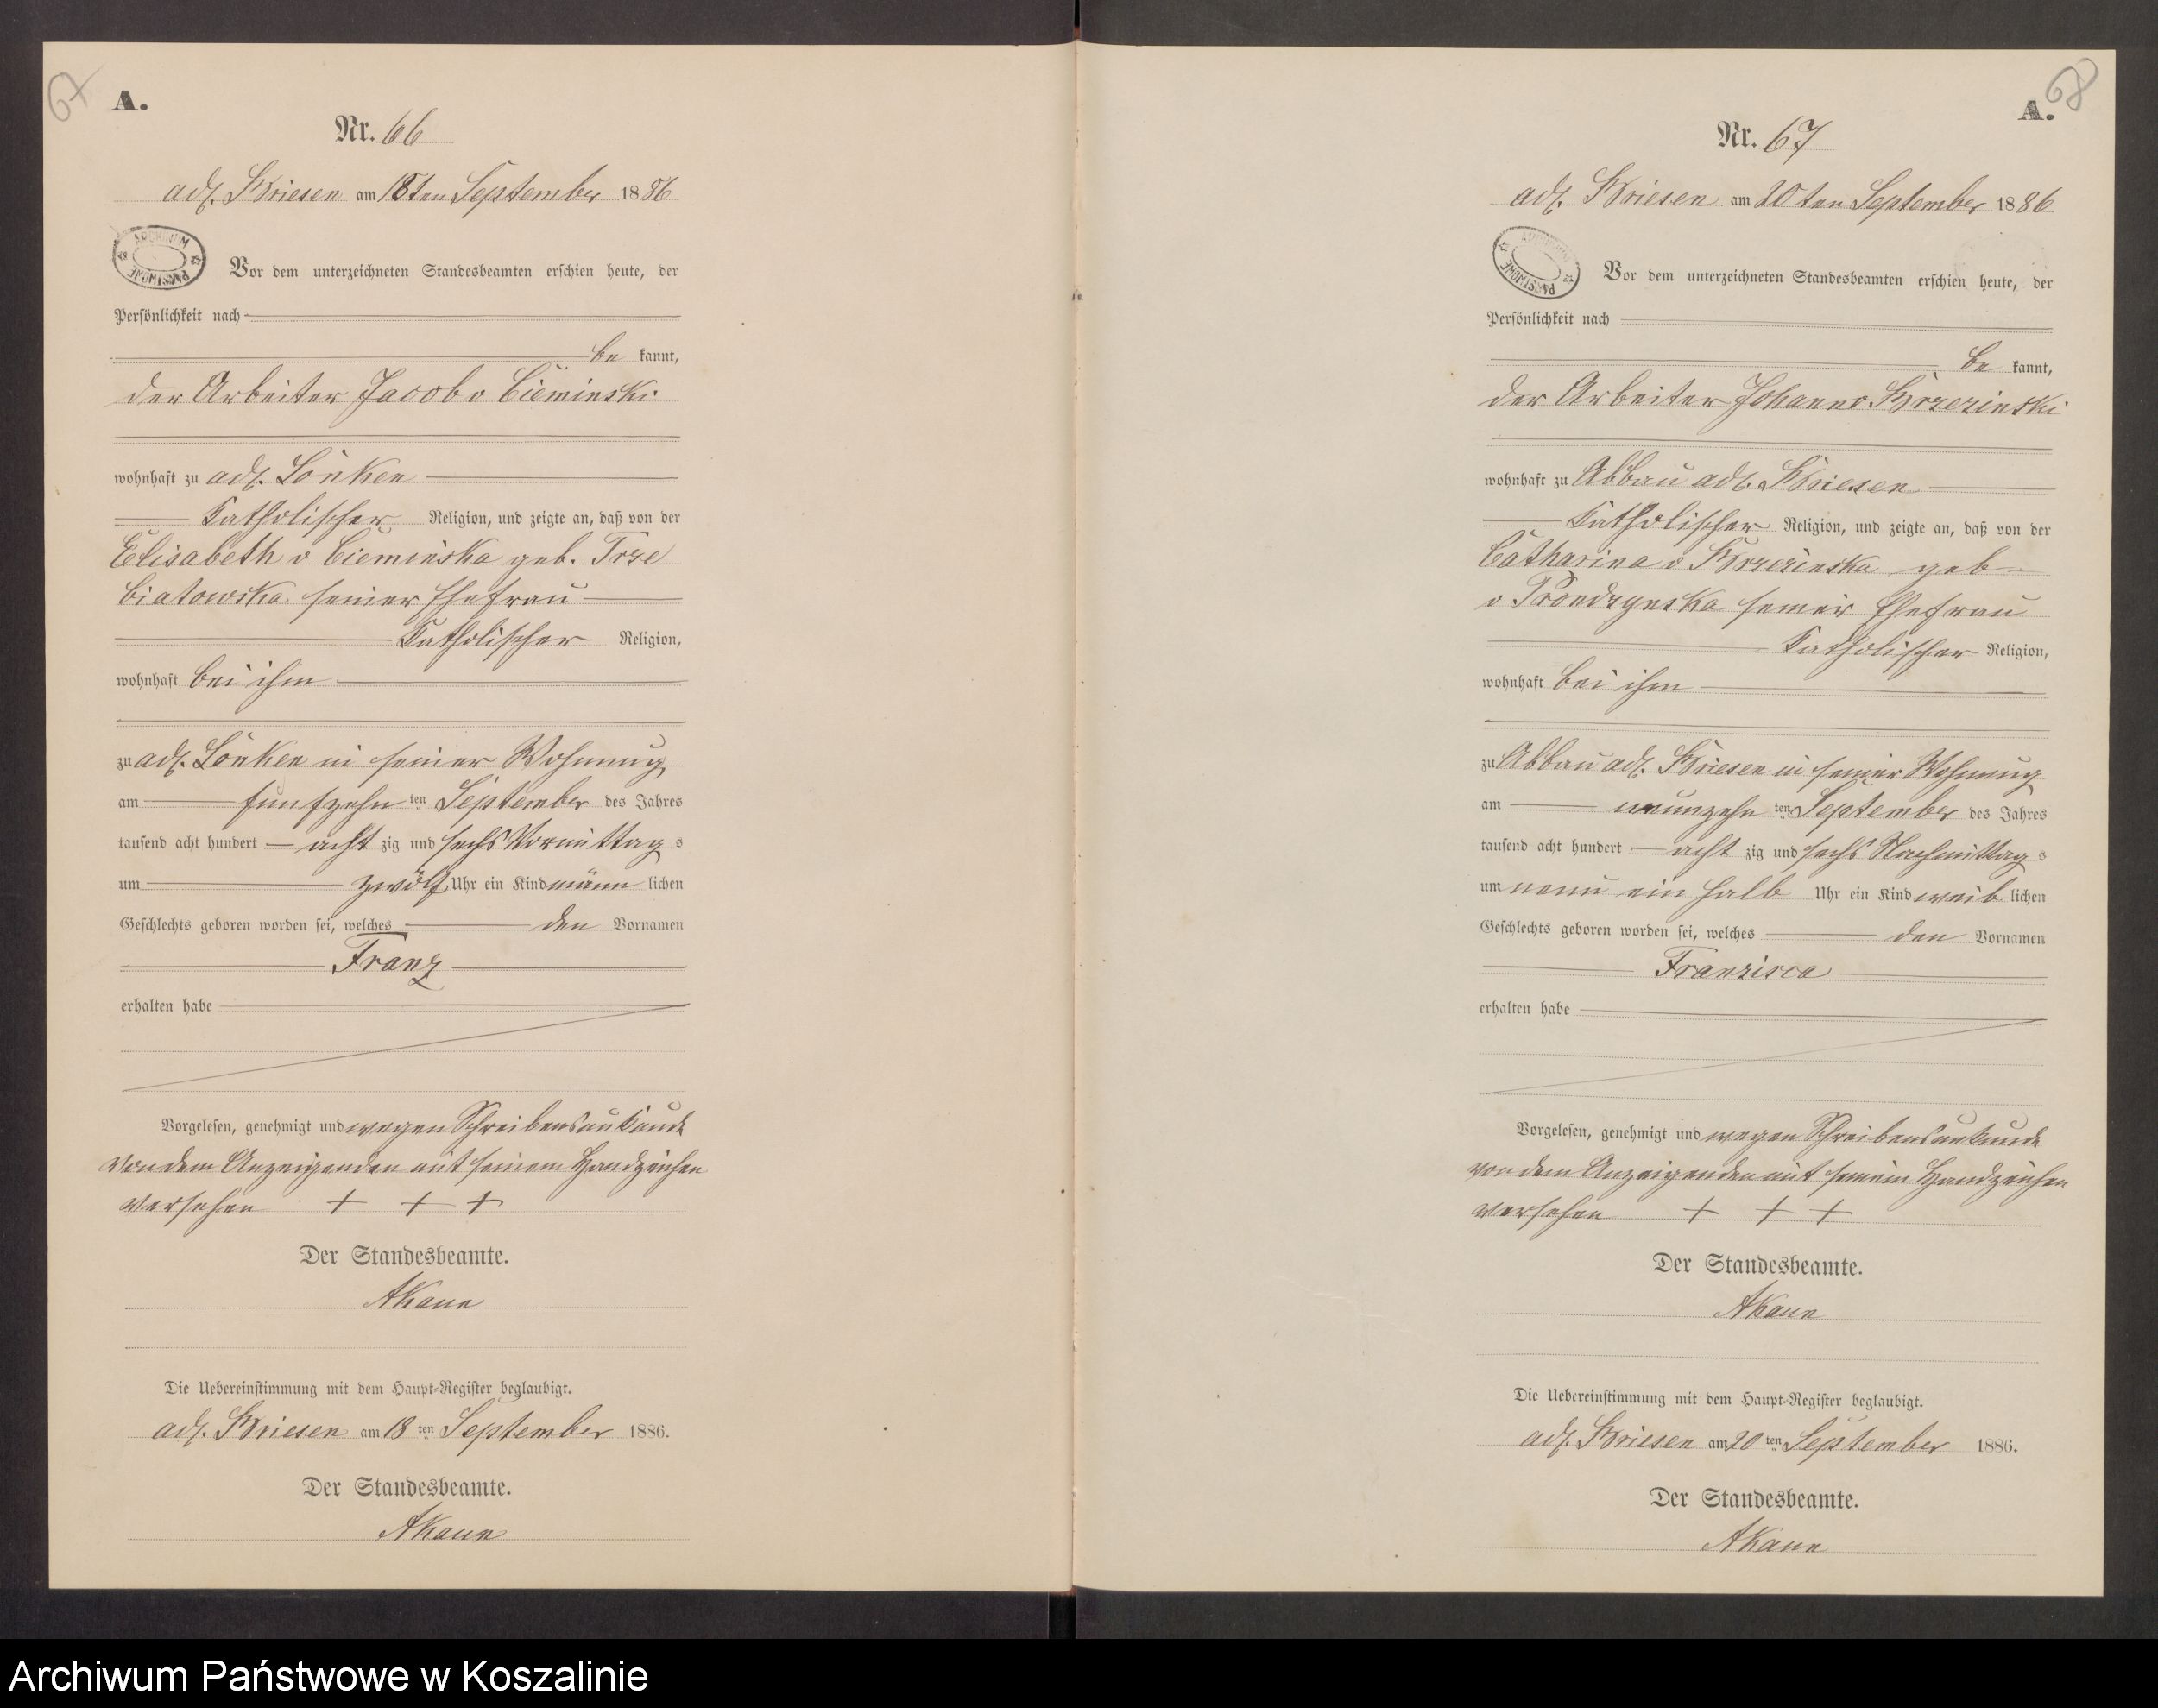 67
A.
Nr. 66
adl. Briesen am 18ten September 1886
ARCHIWUM PAŃSTWOWE
Vor dem unterzeichneten Standesbeamten erschien heute, der
Persönlichkeit nach
be kannt,
der Arbeiter Jacob v Cieminski
wohnhaft zu adl. Lonken
Katholischer Religion, und zeigte an, daß von der
Elisabeth v Cieminska geb. Trze
biatowska seiner Ehefrau
Katholischer Religion,
wohnhaft bei ihm
zu adl. Lonken in seiner Wohnung
am fünfzehn ten September des Jahres
tausend acht hundert acht zig und sechs Vormittag s
um zwölf Uhr ein Kind männ lichen
Geschlechts geboren worden sei, welches den Vornamen
Franz
erhalten habe
Vorgelesen, genehmigt und wegen Schreibensunkunde
von dem Anzeigenden mit seinem Handzeichen
versehen + + +
Der Standesbeamte.
AKaun
Die Uebereinstimmung mit dem Haupt-Register beglaubigt.
adl. Briesen am 18 ten September 1886.
Der Standesbeamte.
AKaun
68
A.
Nr. 67
adl. Briesen am 20ten September 1886
ARCHIWUM PAŃSTWOWE
Vor dem unterzeichneten Standesbeamten erschien heute, der
Persönlichkeit nach
be kannt,
der Arbeiter Johann v Brzezinski
wohnhaft zu Abbau adl. Briesen
Katholischer Religion, und zeigte an, daß von der
Catharina v Brzezinska geb
v Prondzynska seiner Ehefrau
Katholischer Religion,
wohnhaft bei ihm
zu Abbau adl. Briesen in seiner Wohnung
am neunzehn ten September des Jahres
tausend acht hundert acht zig und sechs Nachmittag s
um neun ein halb Uhr ein Kind weib lichen
Geschlechts geboren worden sei, welches den Vornamen
Franzisca
erhalten habe
Vorgelesen, genehmigt und wegen Schreibensunkunde
von dem Anzeigenden mit seinem Handzeichen
versehen + + +
Der Standesbeamte.
AKaun
Die Uebereinstimmung mit dem Haupt-Register beglaubigt.
adl. Briesen am 20 ten September 1886.
Der Standesbeamte.
AKaun
Archiwum Państwowe w Koszalinie